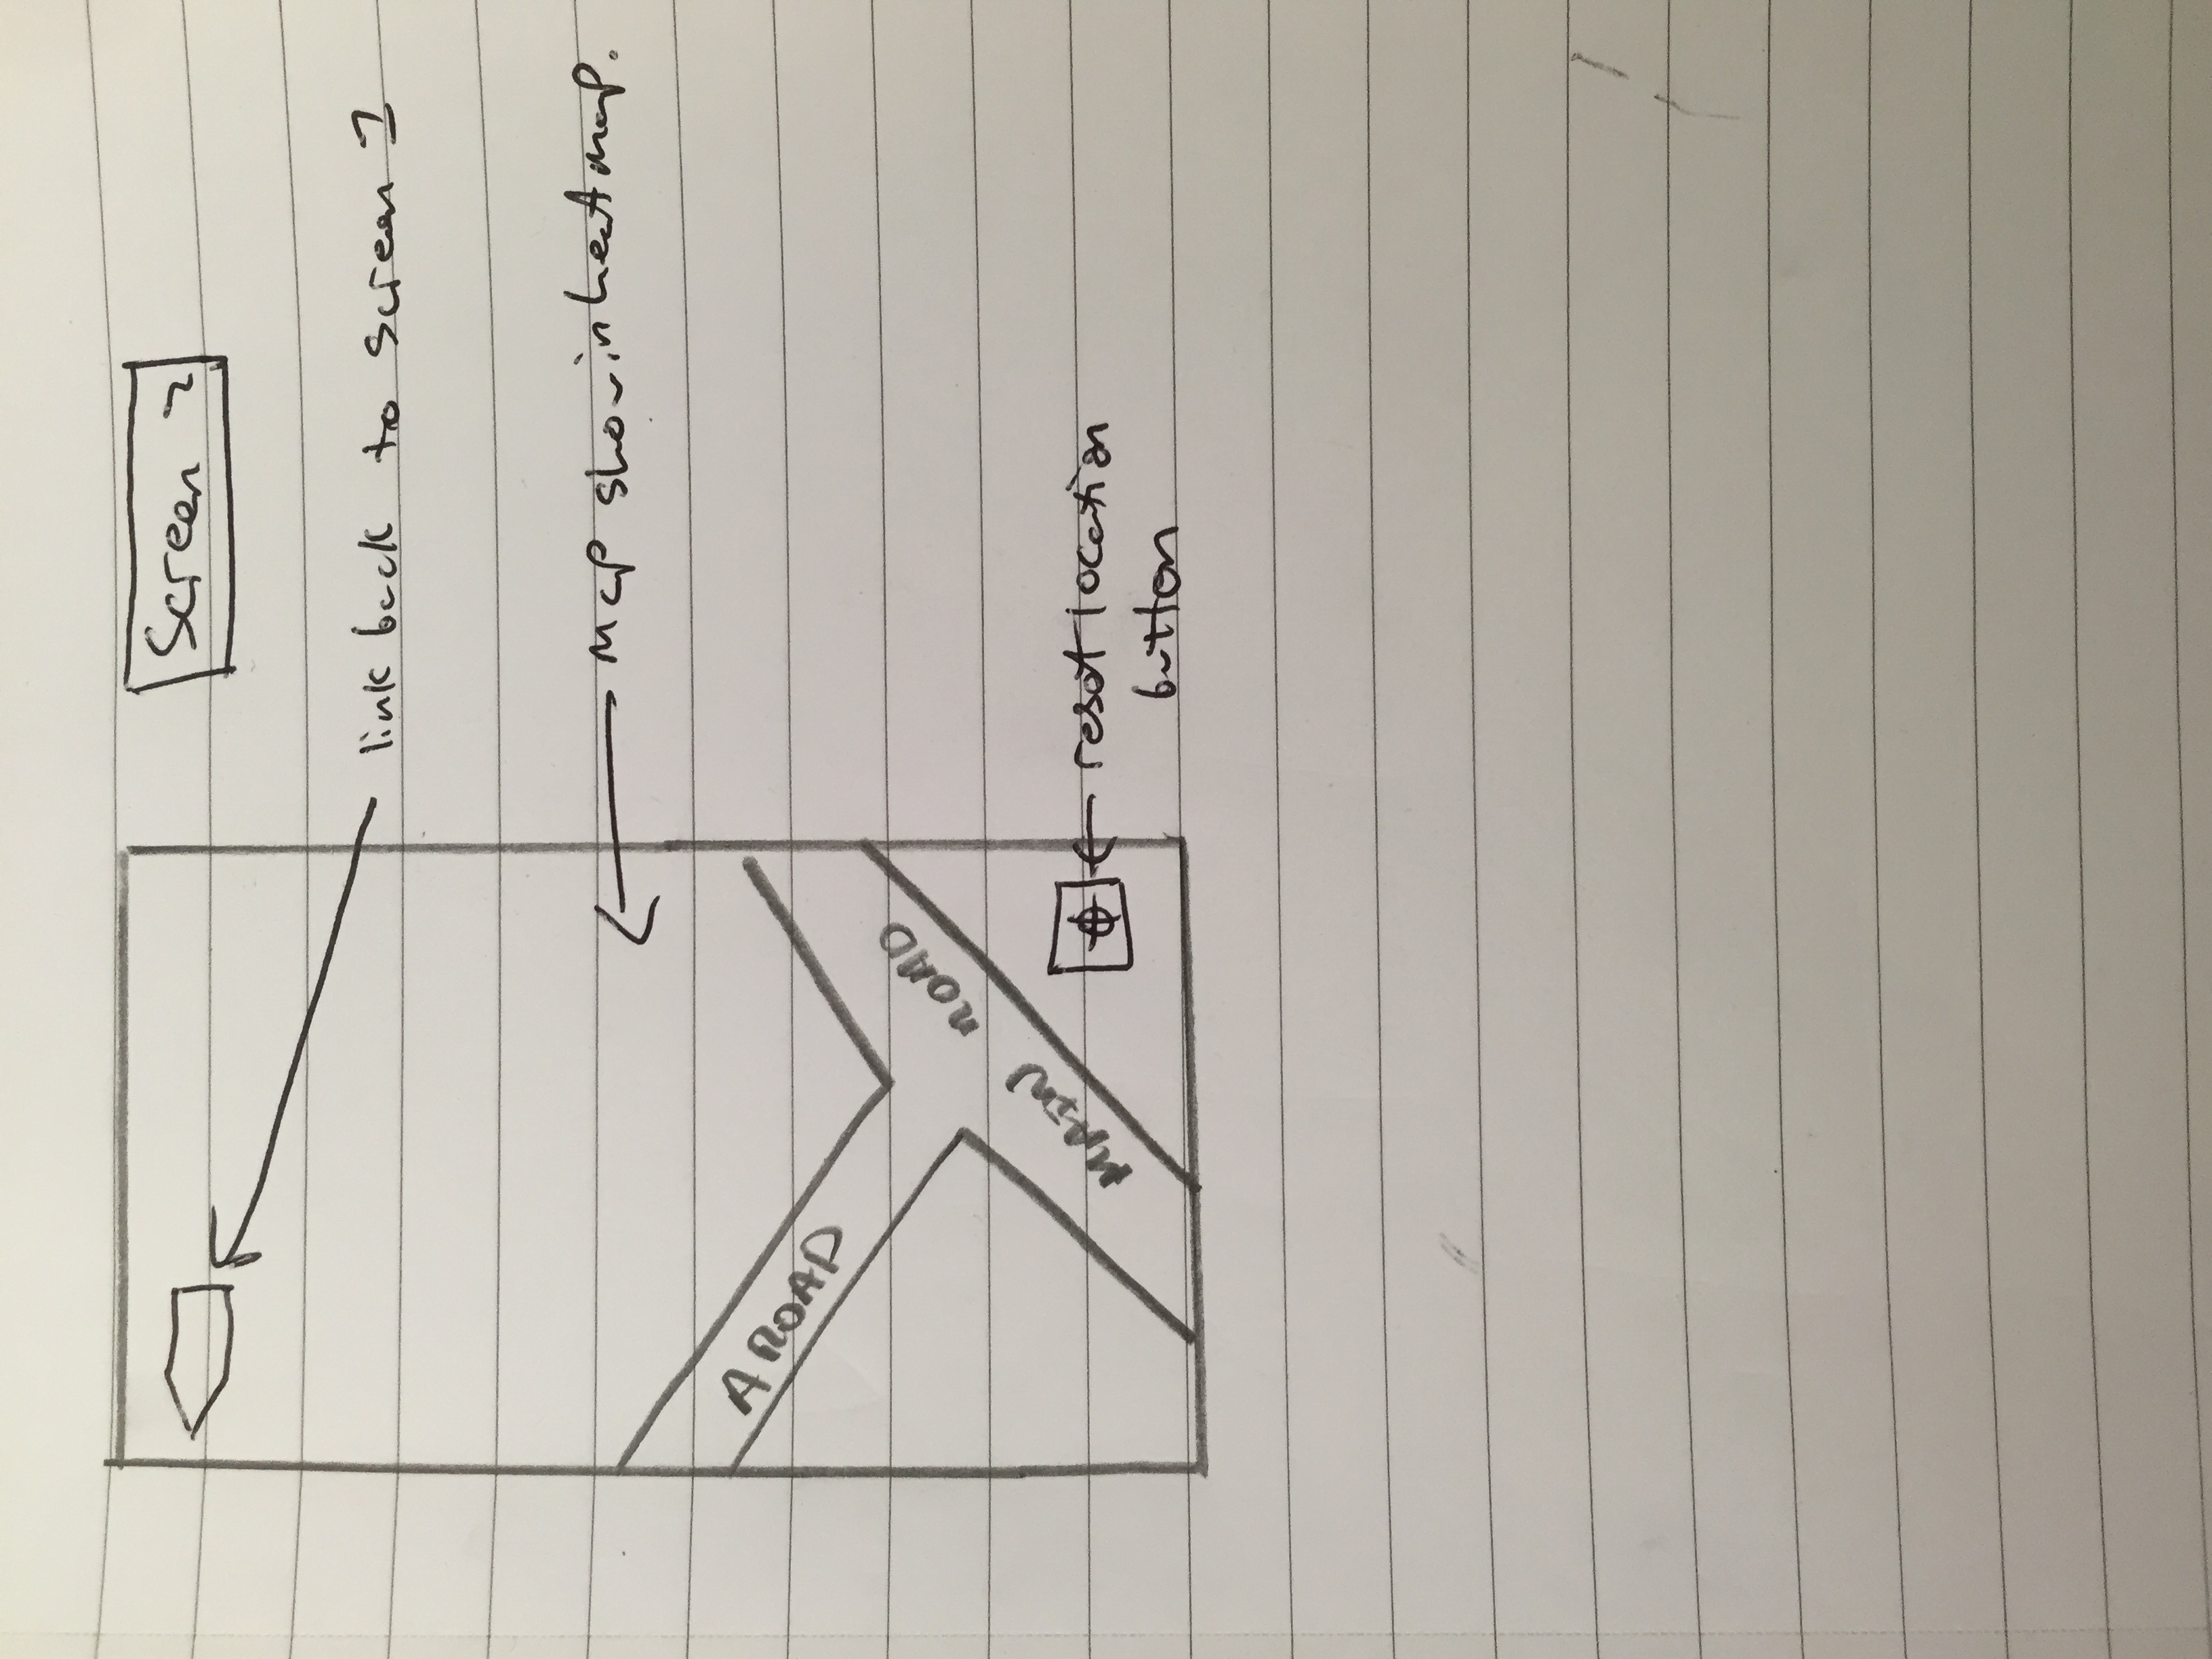 Screen 2
link back to screen 1
Map showin heat map.
A ROAD
MAIN ROAD
reset location
button